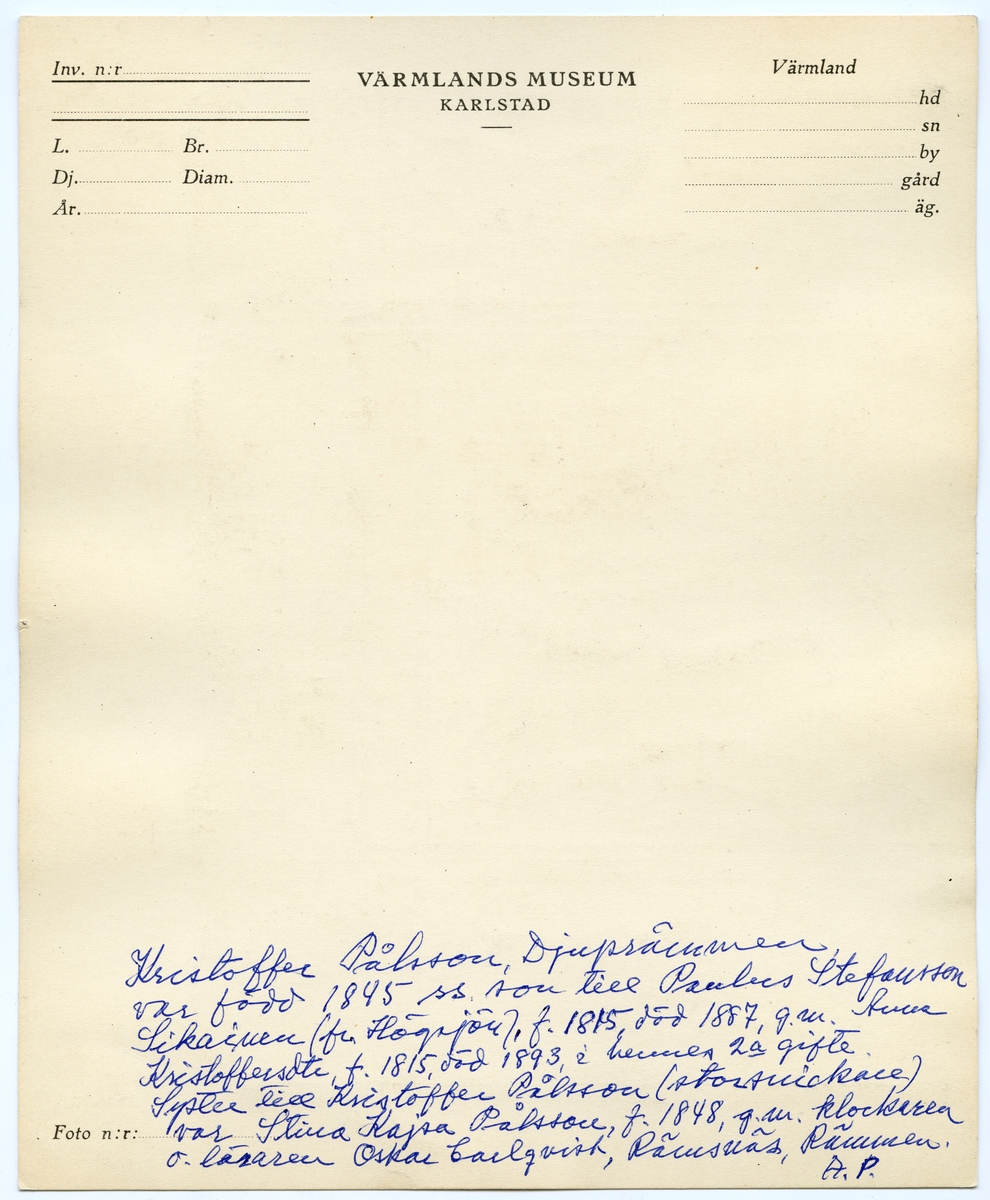 Inv. n:r
VÄRMLANDS MUSEUM
KARLSTAD
Värmland
hd
sn
by
gård
äg.
L. Br.
Dj. Diam.
År.
Kristoffer Pålsson, Djuprämmen,
var född 1845 ss. son till Paulus Stefansson
Sikainen (fr. Högsjön), f. 1815, död 1887, g.m. Anna
Kristoffersdtr, f. 1815, död 1893, i hennes 2a gifte.
Syster till Kristoffer Pålsson (storsnickare)
var Stina Kajsa Pålsson, f. 1848, g.m. klockaren
o. läraren Oskar Carlqvist, Rämsnäs, Rämmen.
A.P.
Foto n:r: